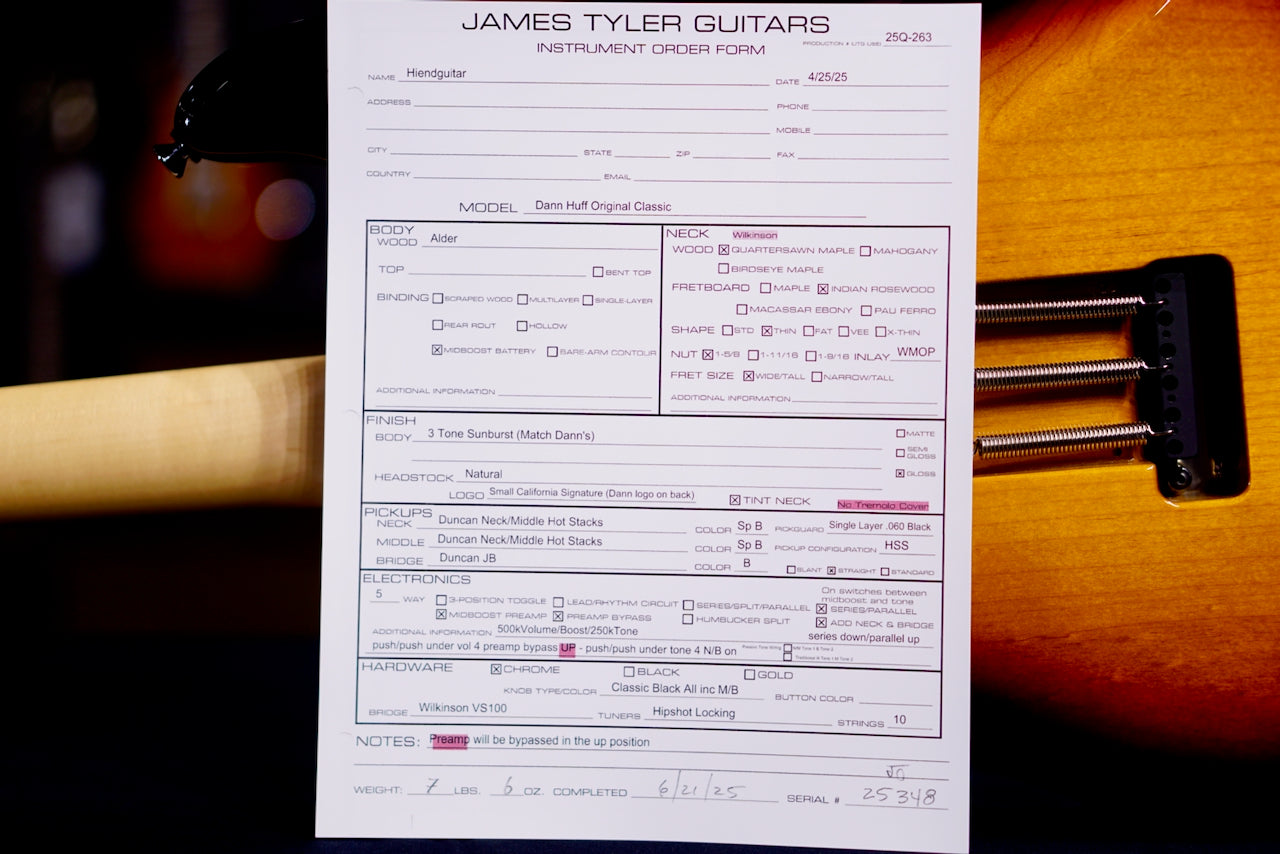 JAMES TYLER GUITARS
INSTRUMENT ORDER FORM
PRODUCTION # (JTG USE) 25Q-263
NAME Hiendguitar DATE 4/25/25
ADDRESS PHONE
MOBILE
CITY STATE ZIP FAX
COUNTRY EMAIL
MODEL Dann Huff Original Classic
BODY
WOOD Alder
TOP BENT TOP
BINDING SCRAPED WOOD MULTILAYER SINGLE-LAYER
REAR ROUT HOLLOW
MIDBOOST BATTERY BARE-ARM CONTOUR
ADDITIONAL INFORMATION
NECK Wilkinson
WOOD QUARTERSAWN MAPLE MAHOGANY
BIRDSEYE MAPLE
FRETBOARD MAPLE INDIAN ROSEWOOD
MACASSAR EBONY PAU FERRO
SHAPE STD THIN FAT VEE X-THIN
NUT 1-5/8 1-11/16 1-9/16 INLAY WMOP
FRET SIZE WIDE/TALL NARROW/TALL
ADDITIONAL INFORMATION
FINISH
BODY 3 Tone Sunburst (Match Dann's) MATTE
SEMI GLOSS
HEADSTOCK Natural GLOSS
LOGO Small California Signature (Dann logo on back) TINT NECK No Tremolo Cover
PICKUPS
NECK Duncan Neck/Middle Hot Stacks COLOR Sp B PICKGUARD Single Layer .060 Black
MIDDLE Duncan Neck/Middle Hot Stacks COLOR Sp B PICKUP CONFIGURATION HSS
BRIDGE Duncan JB COLOR B SLANT STRAIGHT STANDARD
ELECTRONICS
On switches between
midboost and tone
5 WAY 3-POSITION TOGGLE LEAD/RHYTHM CIRCUIT SERIES/SPLIT/PARALLEL SERIES/PARALLEL
MIDBOOST PREAMP PREAMP BYPASS HUMBUCKER SPLIT ADD NECK & BRIDGE
ADDITIONAL INFORMATION 500kVolume/Boost/250kTone series down/parallel up
push/push under vol 4 preamp bypass UP - push/push under tone 4 N/B on
HARDWARE CHROME BLACK GOLD
KNOB TYPE/COLOR Classic Black All inc M/B BUTTON COLOR
BRIDGE Wilkinson VS100 TUNERS Hipshot Locking STRINGS 10
NOTES: Preamp will be bypassed in the up position
WEIGHT: 7 LBS. 6 OZ. COMPLETED 6/21/25 SERIAL # 25348